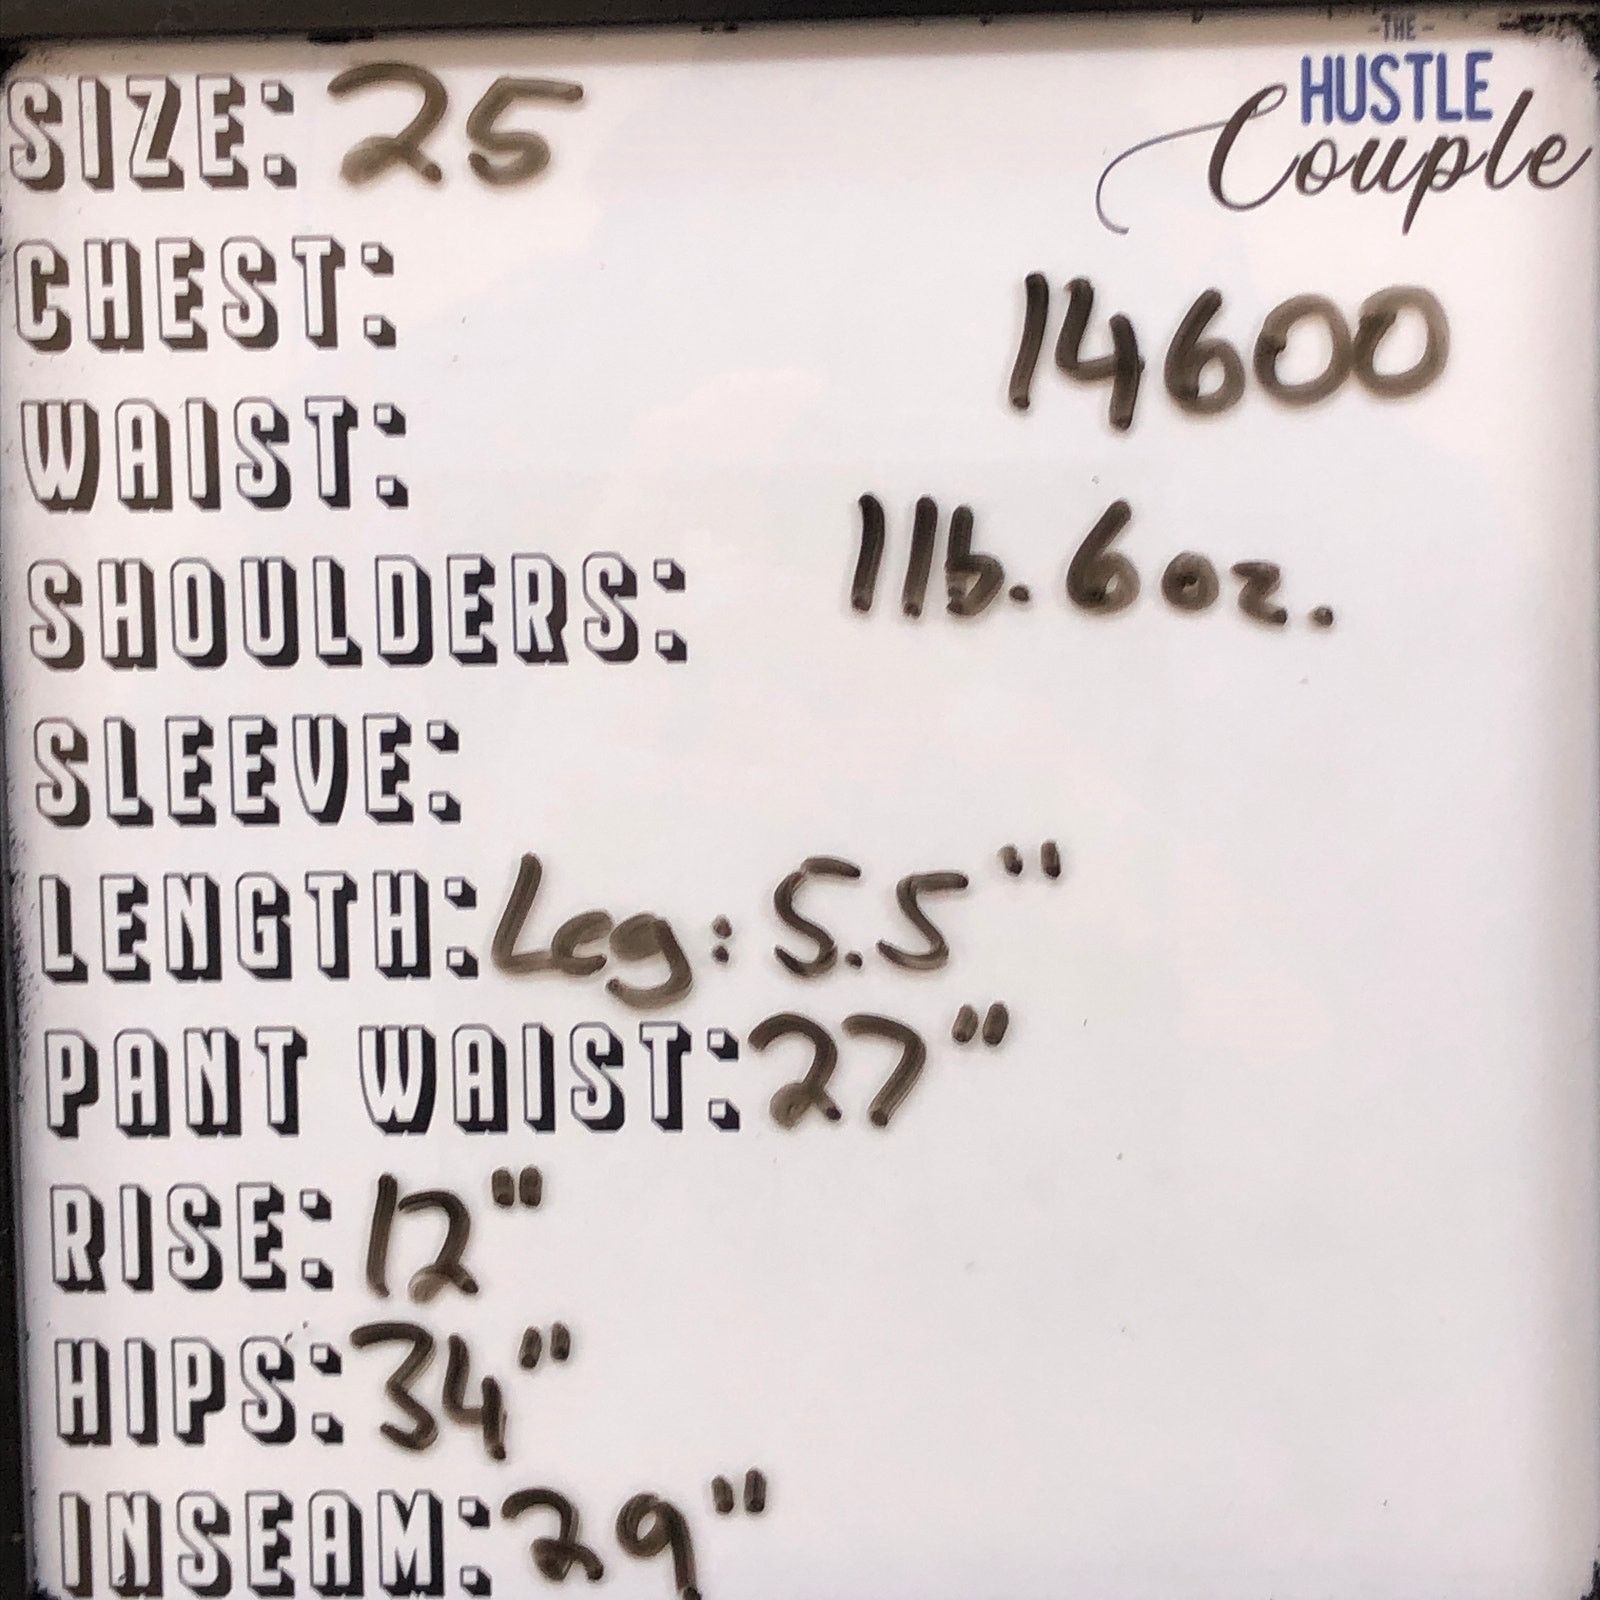 -THE-
HUSTLE
Couple
SIZE: 25
CHEST:
14600
WAIST:
1lb. 6oz.
SHOULDERS:
SLEEVE:
LENGTH: Leg: 5.5"
PANT WAIST: 27"
RISE: 12"
HIPS: 34"
INSEAM: 29"